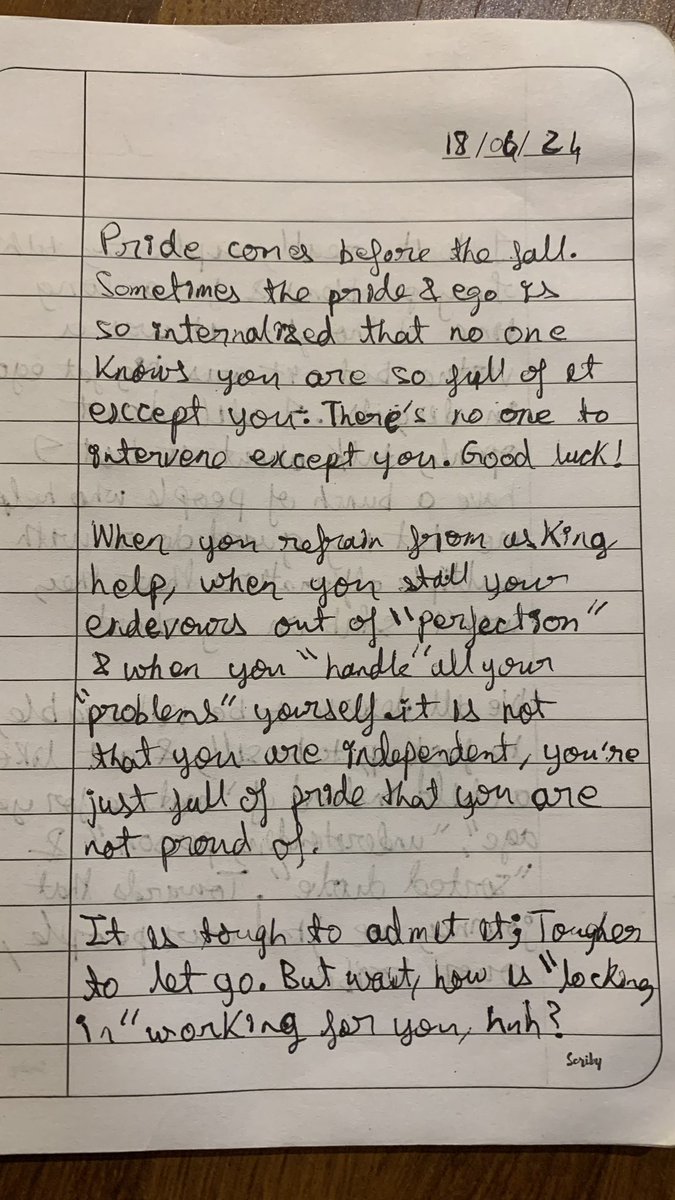 18/06/24
Pride comes before the fall.
Sometimes the pride & ego is
so internalized that no one
knows you are so full of it
except you. There's no one to
intervene except you. Good luck!
When you refrain from asking
help, when you stall your
endevours out of "perfection"
& when you "handle" all your
"problems" yourself it is not
that you are independent, you're
just full of pride that you are
not proud of.
It is tough to admit it; Tougher
to let go. But wait, how is "locking
in" working for you, huh?
Scriby